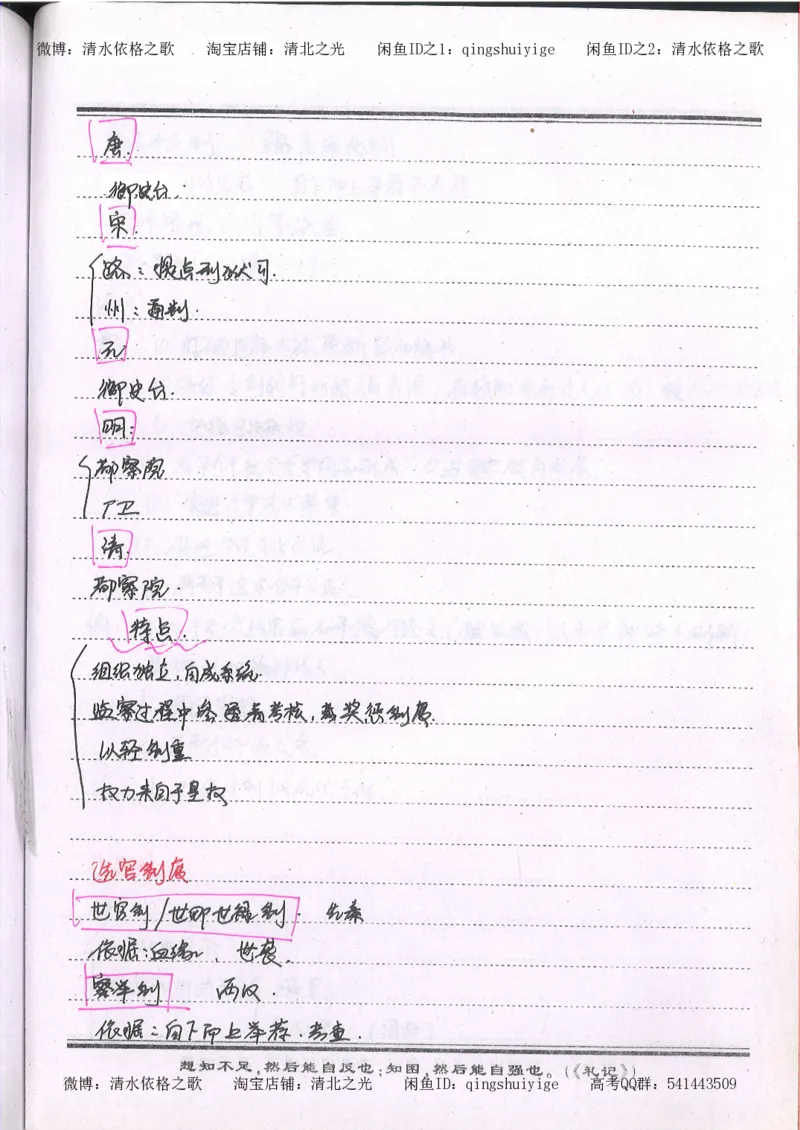 微博：清水依格之歌 淘宝店铺：清北之光 闲鱼ID之1：qingshuiyige 闲鱼ID之2：清水依格之歌
唐.
御史台.
宋.
路：提点刑狱司.
州：通判.
元
御史台.
明：
都察院
厂卫
清.
都察院.
特点.
组织独立,自成系统.
监察过程中 考核,奖惩制度.
以轻制重
权力来自于皇权
选官制度
世官制/世卿世禄制. 先秦
依据：血缘、世袭.
察举制 两汉.
依据：自下而上举荐.考查.
想知不足,然后能自反也;知困,然后能自强也。(《礼记》)
微博：清水依格之歌 淘宝店铺：清北之光 闲鱼ID：qingshuiyige 高考QQ群：541443509